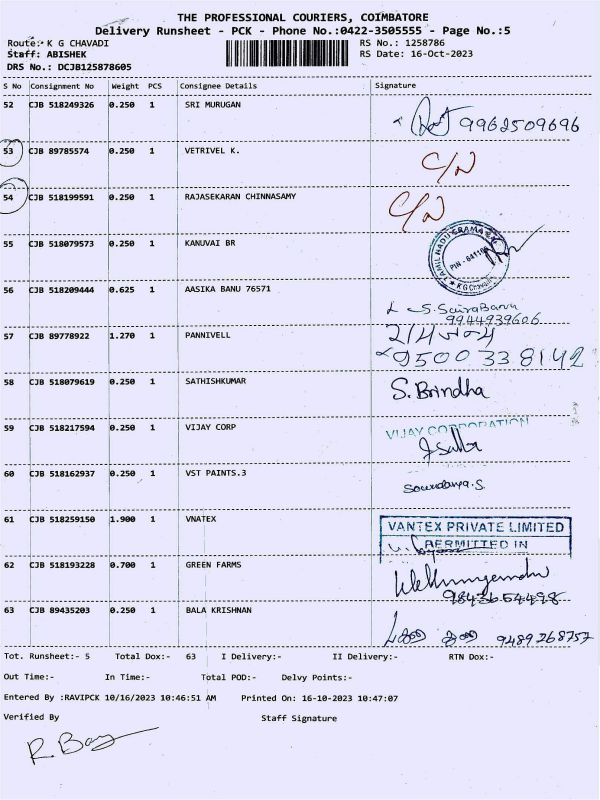 THE PROFESSIONAL COURIERS, COIMBATORE
Delivery Runsheet - PCK - Phone No.:0422-3505555 - Page No.:5
Route:- K G CHAVADI RS No.: 1258786
Staff: ABISHEK RS Date: 16-Oct-2023
DRS No.: DCJB125878605
S No Consignment No Weight PCS Consignee Details Signature
52 CJB 518249326 0.250 1 SRI MURUGAN
9962509696
53 CJB 89785574 0.250 1 VETRIVEL K.
C/N
54 CJB 518199591 0.250 1 RAJASEKARAN CHINNASAMY
C/N
55 CJB 518079573 0.250 1 KANUVAI BR
TAMIL NADU GRAMA
PIN - 641105
K G Chavadi
56 CJB 518209444 0.625 1 AASIKA BANU 76571
S. Saira Banu
9944939606
57 CJB 89778922 1.270 1 PANNIVELL
9500338142
58 CJB 518079619 0.250 1 SATHISHKUMAR S. Brindha
59 CJB 518217594 0.250 1 VIJAY CORP VIJAY CORPORATION
60 CJB 518162937 0.250 1 VST PAINTS.3
Soundarya.S.
61 CJB 518259150 1.900 1 VNATEX
VANTEX PRIVATE LIMITED
PERMITTED IN
62 CJB 518193228 0.700 1 GREEN FARMS
9843654498
63 CJB 89435203 0.250 1 BALA KRISHNAN
9489268757
Tot. Runsheet:- 5 Total Dox:- 63 I Delivery:- II Delivery:- RTN Dox:-
Out Time:- In Time:- Total POD:- Delvy Points:-
Entered By :RAVIPCK 10/16/2023 10:46:51 AM Printed On: 16-10-2023 10:47:07
Verified By Staff Signature